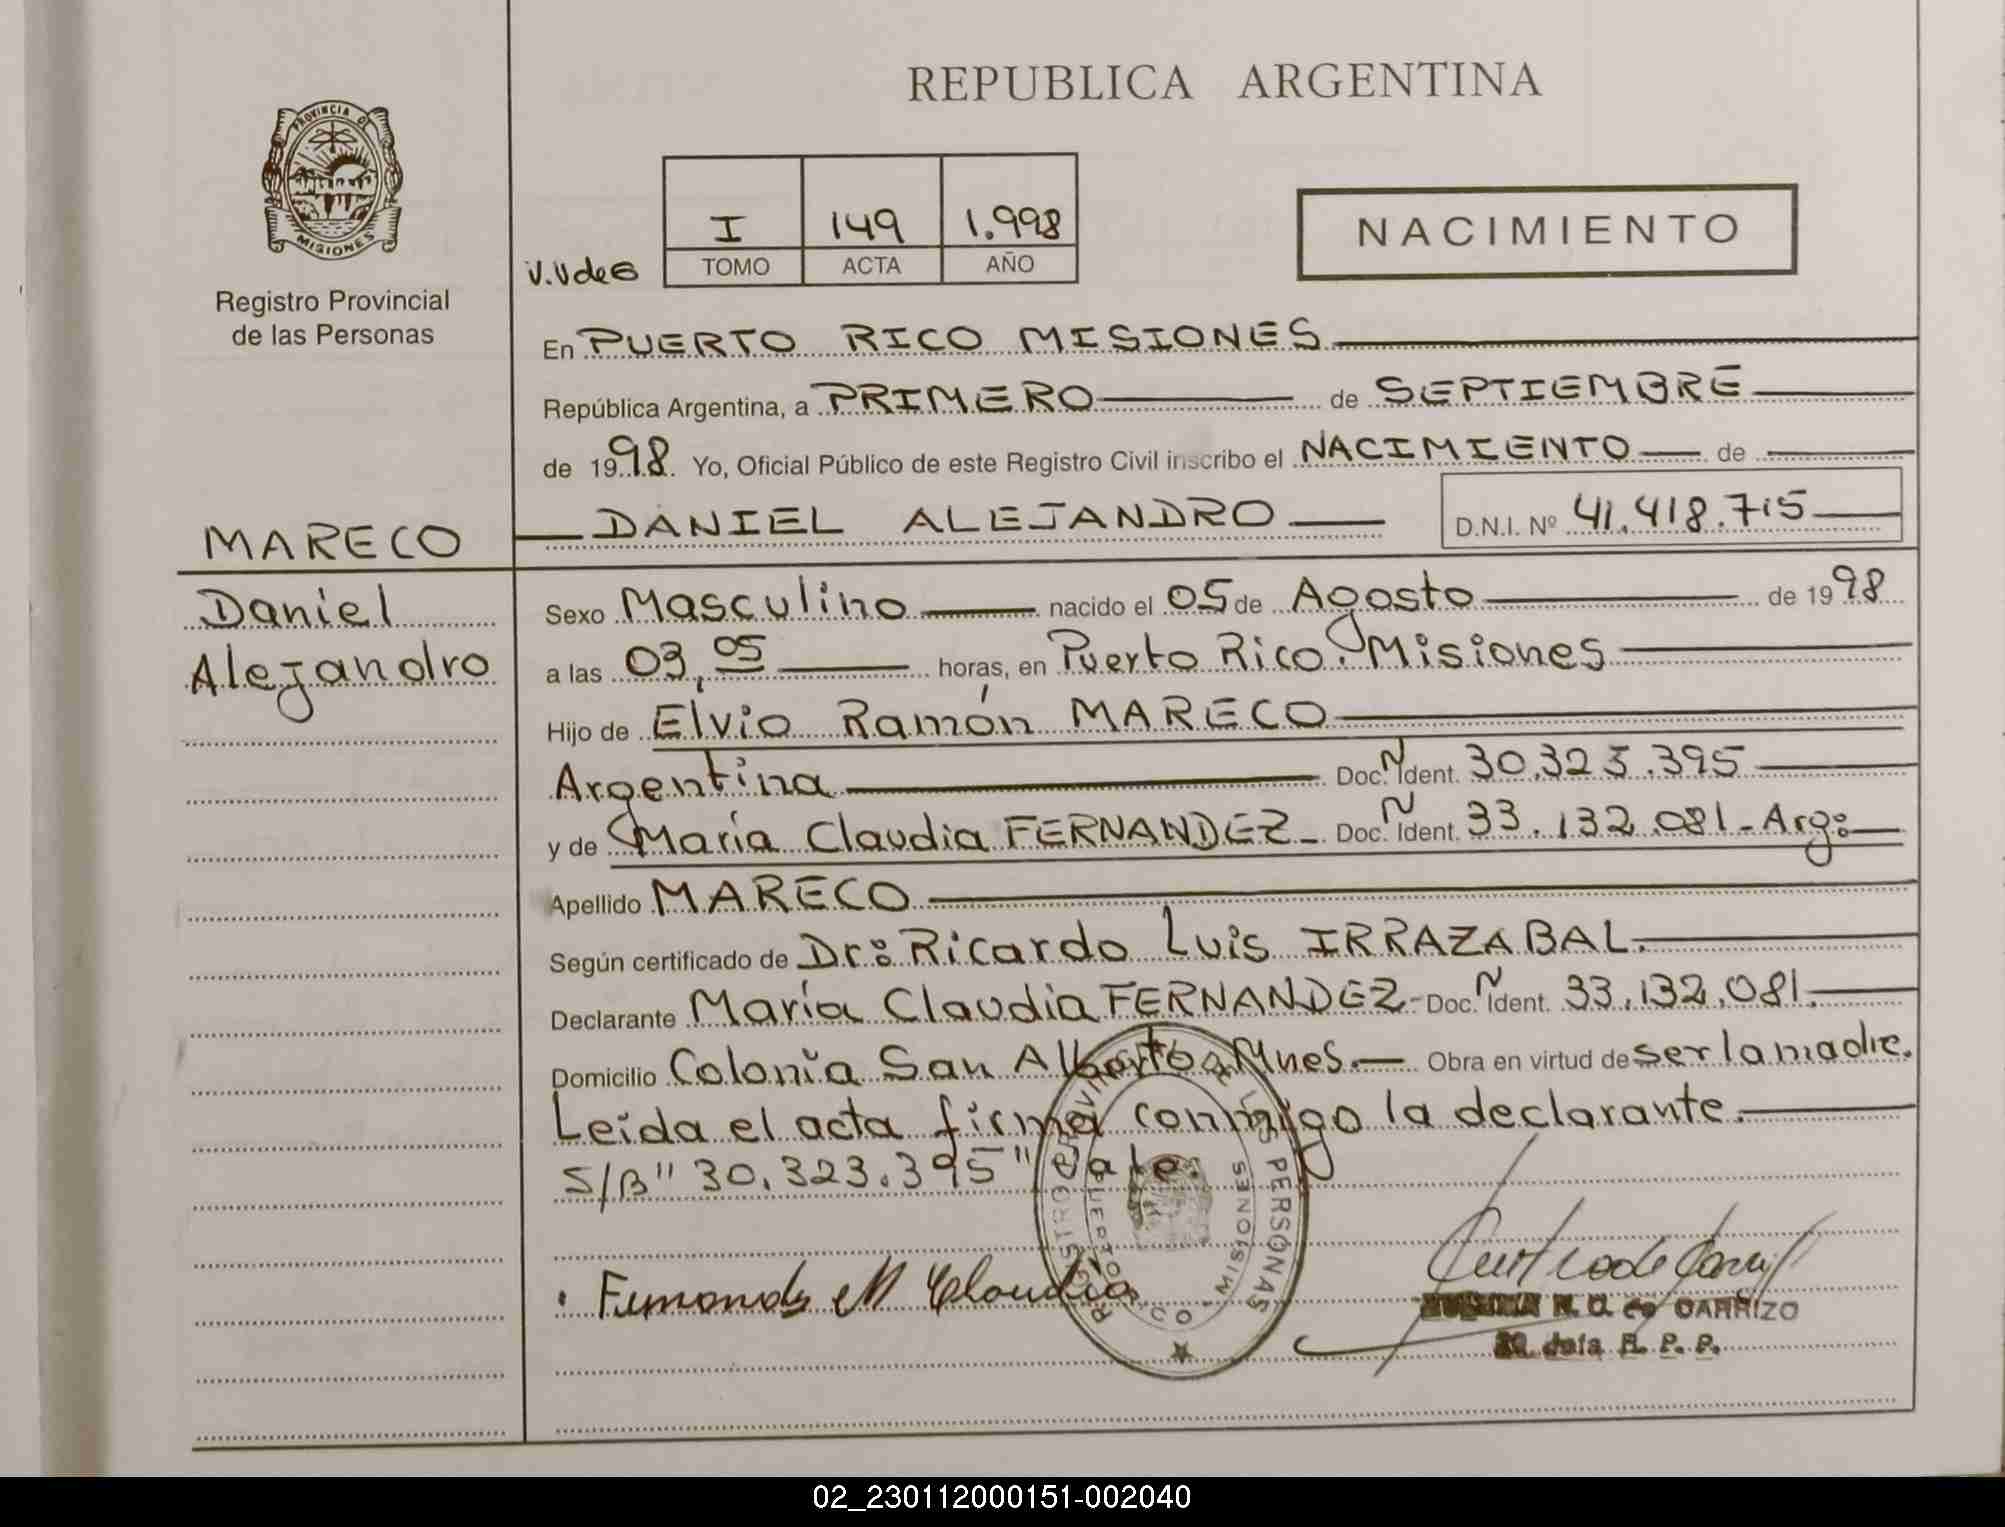 REPUBLICA ARGENTINA
PROVINCIA DE
MISIONES
Registro Provincial
de las Personas
I 149 1.998
TOMO ACTA AÑO
NACIMIENTO
En PUERTO RICO MISIONES
República Argentina, a PRIMERO de SEPTIEMBRE
de 1998. Yo, Oficial Público de este Registro Civil inscribo el NACIMIENTO de
DANIEL ALEJANDRO D.N.I. Nº 41.418.715
MARECO
Daniel
Alejandro
Sexo Masculino nacido el 05 de Agosto de 1998
a las 03,05 horas, en Puerto Rico. Misiones
Hijo de Elvio Ramón MARECO
Argentina Doc. Ñ Ident. 30.323.395
y de María Claudia FERNANDEZ Doc. Ñ Ident. 33.132.081 - Arg:
Apellido MARECO
Según certificado de Dr: Ricardo Luis IRRAZABAL.
Declarante María Claudia FERNANDEZ - Doc. Ñ Ident. 33.132.081.
Domicilio Colonia San Alberto Mnes. Obra en virtud de ser la madre.
Leída el acta firma conmigo la declarante.
S/B "30.323.395" Vale.
REGISTRO PROVINCIAL DE LAS PERSONAS
PUERTO RICO - MISIONES
Fernandez M Claudia
N. C. de CARRIZO
R. P. P.
02_230112000151-002040